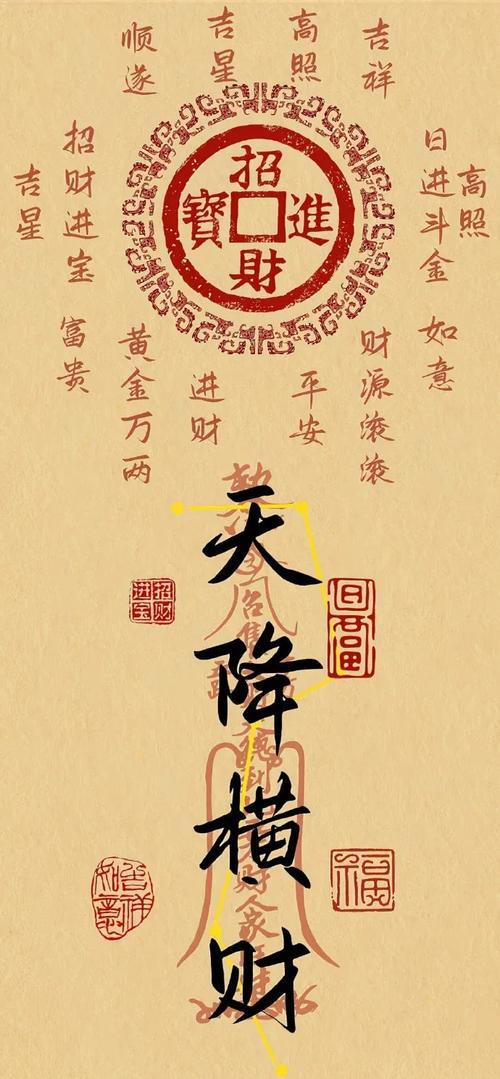 顺遂
吉星
高照
吉祥
吉星
招财进宝
日进斗金
高照
招財進寶
富贵
黄金万两
进财
平安
财源滚滚
如意
天降横财
招财进宝
福
吉祥如意